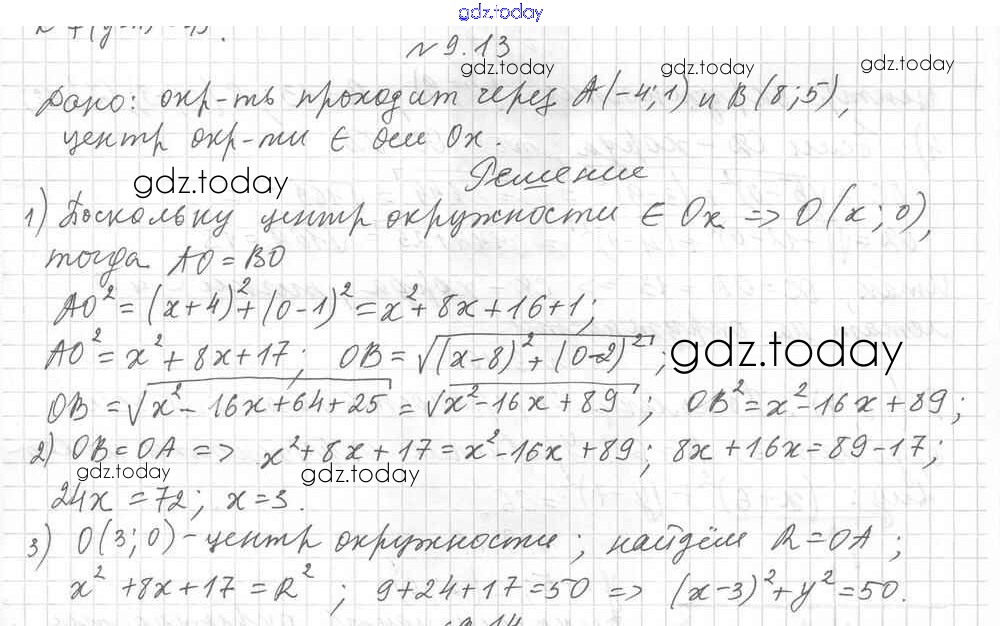 gdz.today
№9.13
gdz.today gdz.today gdz.today
Дано: окр-ть проходит через A(-4;1) и B(8;5),
центр окр-ти ∈ оси Ox.
gdz.today Решение
1) Поскольку центр окружности ∈ Ox => O(x;0),
тогда AO=BO
AO²=(x+4)²+(0-1)²=x²+8x+16+1;
AO²=x²+8x+17; OB=√((x-8)²+(0-2)²); gdz.today
OB=√(x²-16x+64+25)=√(x²-16x+89); OB²=x²-16x+89;
2) OB=OA => x²+8x+17=x²-16x+89; 8x+16x=89-17;
gdz.today gdz.today
24x=72; x=3.
3) O(3;0)-центр окружности; найдём R=OA;
x²+8x+17=R²; 9+24+17=50 => (x-3)²+y²=50.